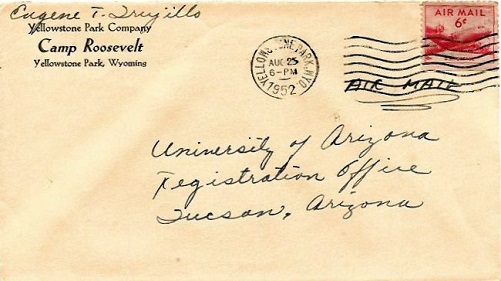 Eugene T. Trujillo
Yellowstone Park Company
Camp Roosevelt
Yellowstone Park, Wyoming
YELLOWSTONE PARK, WYO.
AUG 25
6-PM
1952
AIR MAIL
6¢
AIR MAIL
University of Arizona
Registration Office
Tucson, Arizona